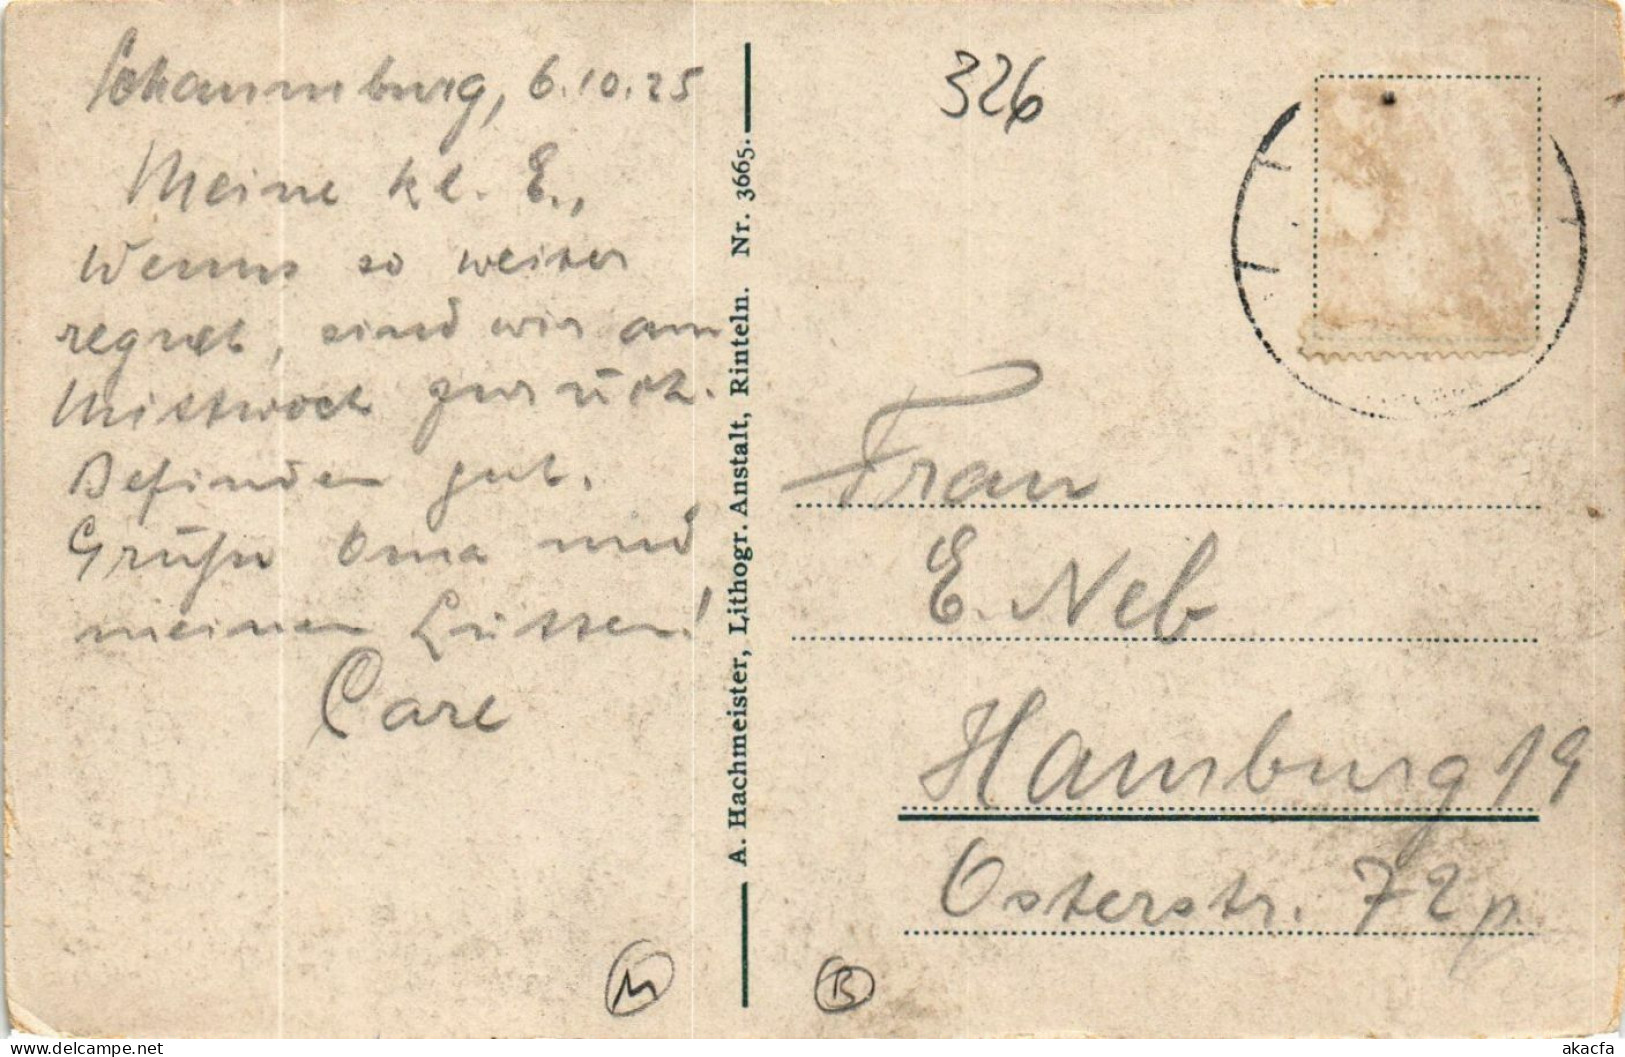 Schaumburg, 6.10.25
Meine kl. E.,
Wenns so weiter
regnet, sind wir am
Mittwoch zurück.
Befinden gut.
Grüße Oma und
meinen Lütten!
Carl
A. Hachmeister, Lithogr. Anstalt, Rinteln. Nr. 3665.
326
Frau
E. Neb
Hamburg 19
Osterstr. 72 p.
M
B
akacfa